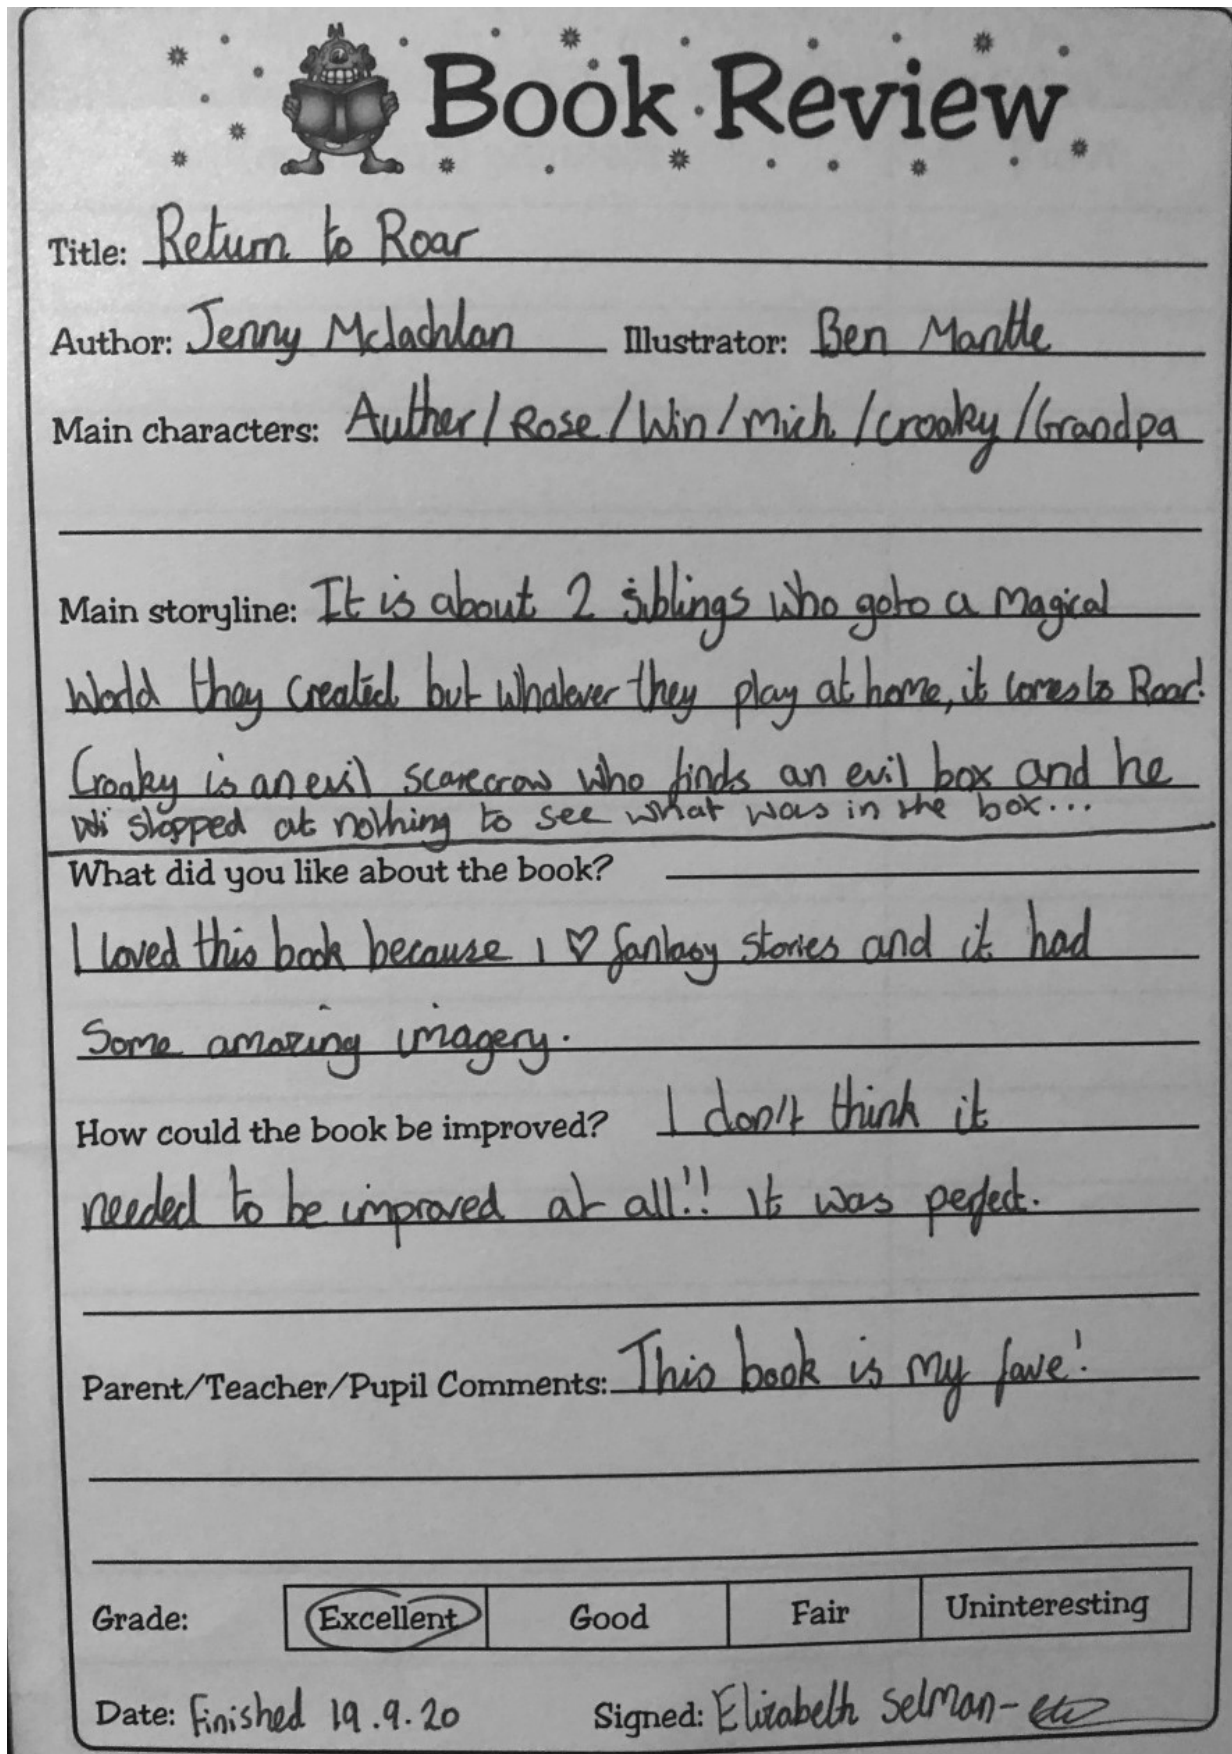 Book Review
Title: Return to Roar
Author: Jenny Mclachlan Illustrator: Ben Mantle
Main characters: Auther/Rose/Win/Mich/Croaky/Grandpa
Main storyline: It is about 2 siblings who goto a magical
World they created but whatever they play at home, it comes to Roar!
Croaky is an evil scarecrow who finds an evil box and he
stopped at nothing to see what was in the box...
What did you like about the book?
I loved this book because I ♡ fantasy stories and it had
Some amazing imagery.
How could the book be improved? I don't think it
needed to be improved at all!! It was perfect.
Parent/Teacher/Pupil Comments: This book is my fave!
Grade: Excellent Good Fair Uninteresting
Date: Finished 19.9.20 Signed: Elizabeth Selman-